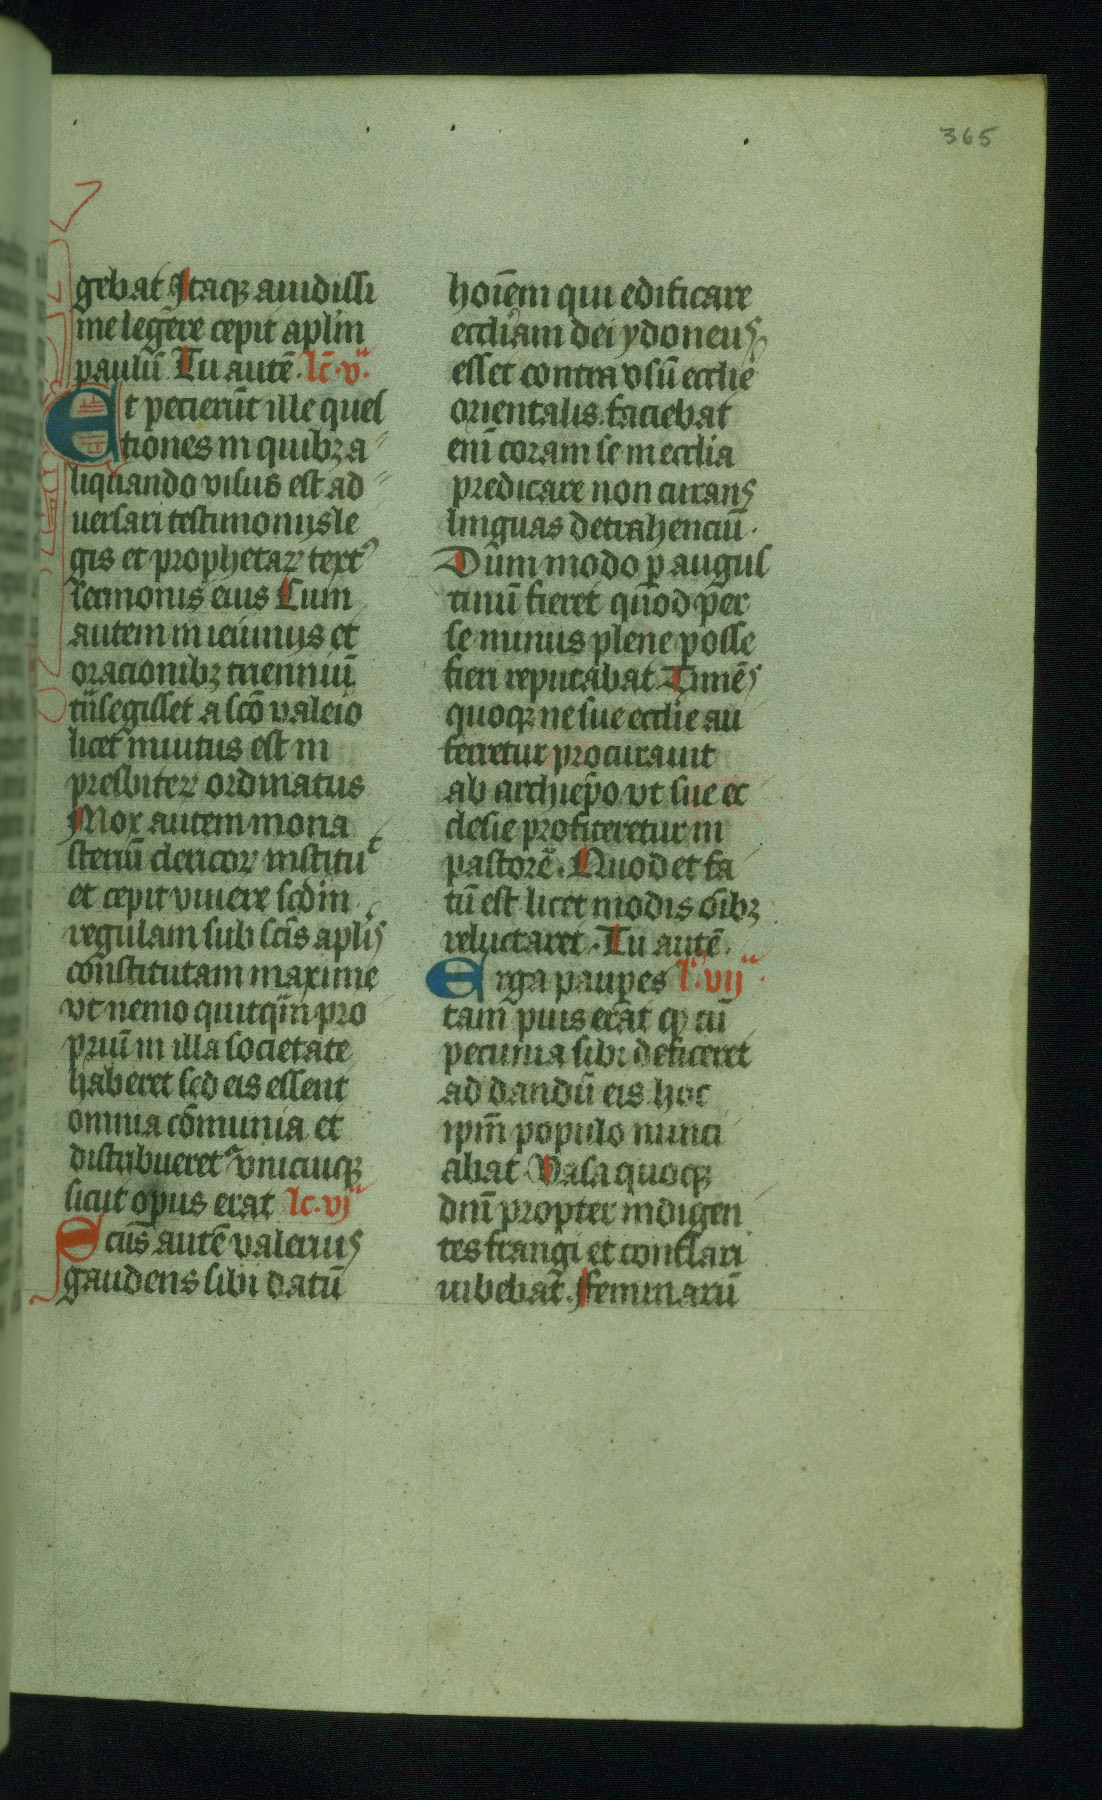 365
gebat Itaqꝫ auidissi
me legere cepit apl̄m
paulū Tu autē lc̄ v
Et pecierūt ille ques
tiones in quibꝫ a
liquando visus est ad
uersari testimonijs le
gis et prophetaꝝ text
sermonis eius Cum
autem in ieiunijs et
oracionibꝫ trienniū
tͥisegisset a sc̄o valeio
licet inuitus est in
presbiteꝝ ordinatus
Mox autem mona
steriū clericoꝝ instituͭ
et cepit viuere scd̄m
regulam sub sc̄is apl̄is
constitutam maxime
vt nemo quitqͣm pro
priū in illa societate
haberet sed eis essent
omnia cōmunia et
distribueret᷑ vnicuiqꝫ
sicut opus erat lc vj
Scūs autē valerius
gaudens sibi datū
hoīem qui edificare
eccl̄iam dei ydoneus
esset contra vsū eccl̄ie
orientalis faciebat
eni coram se in eccl̄ia
predicare non curans
linguas detrahenciū
Dum modo ꝑ augus
tinū fieret quod per
se minus plene posse
fieri reputabat Timēs
quoqꝫ ne sue eccl̄ie au
ferretur procurauit
ab archiep̄o vt sue ec
clesie profiteretur in
pastorē Quod et fa
tū est licet modis oībꝫ
reluctaret Tu autē
Erga pauꝑes l vij
tam pius erat ꝙ cū
pecunia sibi deficeret
ad dandū eis hoc
ip̄m populo nunci
abat Vasa quoqꝫ
dn̄i propter indigen
tes frangi et conflari
iubebat ffeminarū